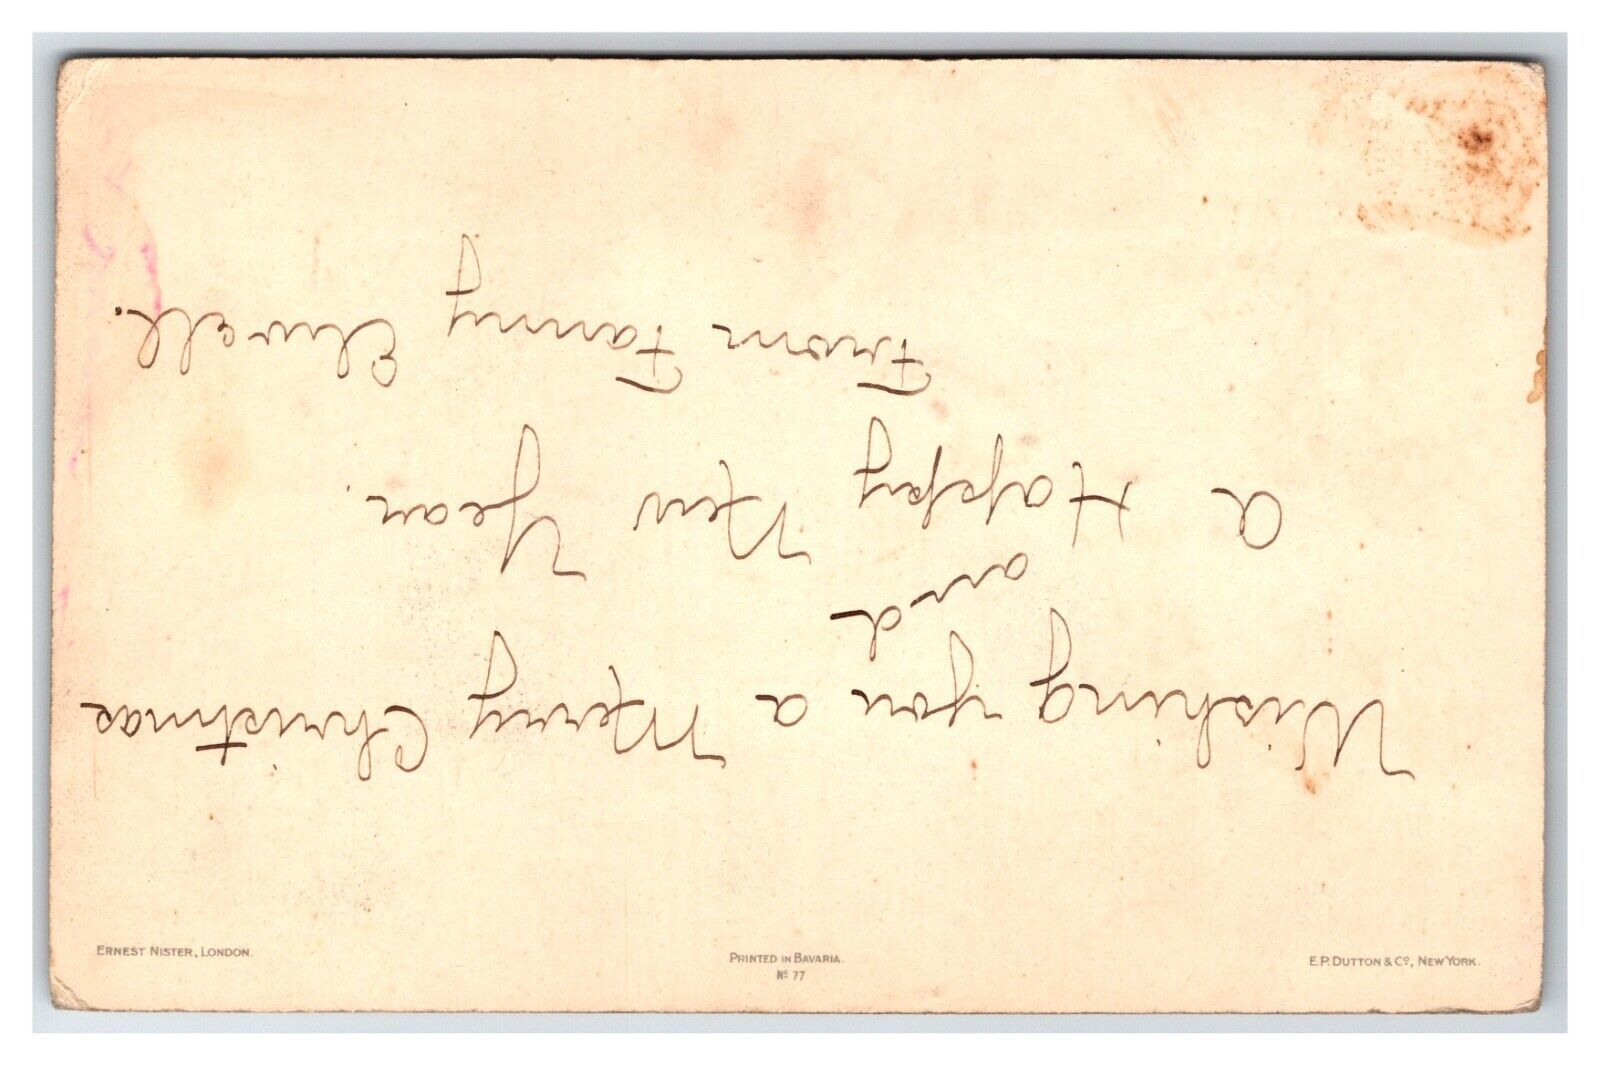 Wishing you a Merry Christmas
and
a Happy New Year.
From Fanny Elwell.
ERNEST NISTER, LONDON.
PRINTED IN BAVARIA.
Nº 77
E.P. DUTTON & Cº, NEW YORK.